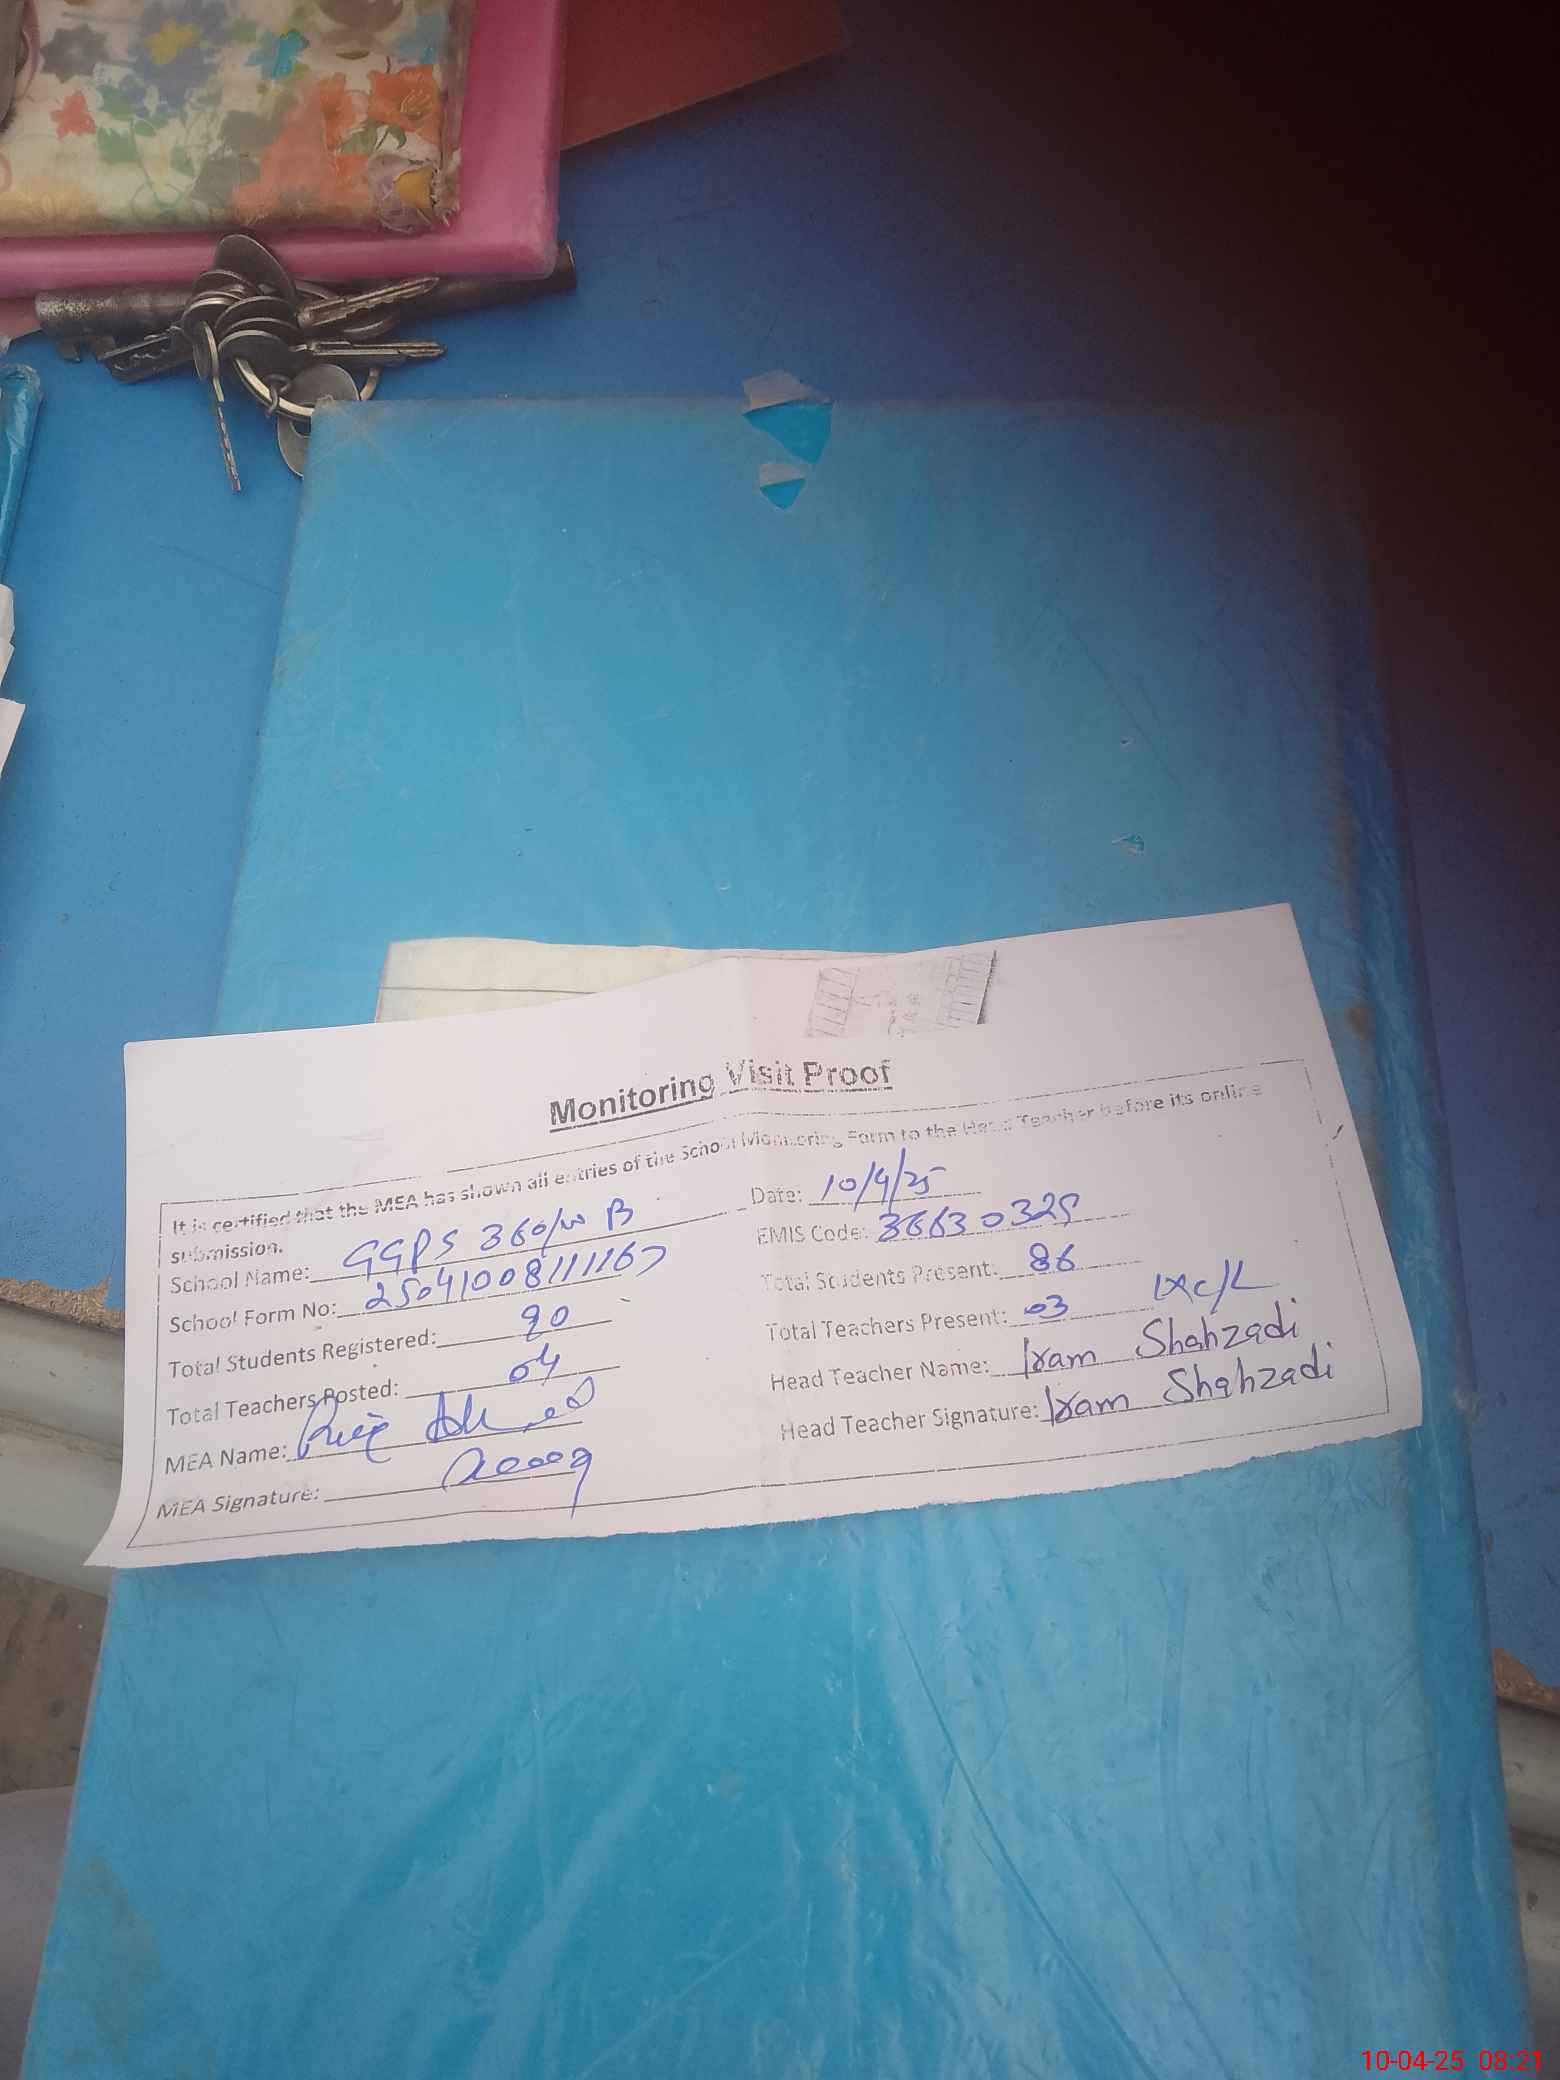 Monitoring Visit Proof
It is certified that the MEA has shown all entries of the School Monitoring Form to the Head Teacher before its online
submission.
Date: 10/4/25
School Name: GGPS 360/W B
EMIS Code: 36630325
School Form No: 25041008111167
Total Students Present: 86
Total Students Registered: 90
Total Teachers Present: 03 1xc/L
Total Teachers Posted: 04
Head Teacher Name: Iram Shahzadi
MEA Name:
Head Teacher Signature: Iram Shahzadi
MEA Signature:
10-04-25 08:21